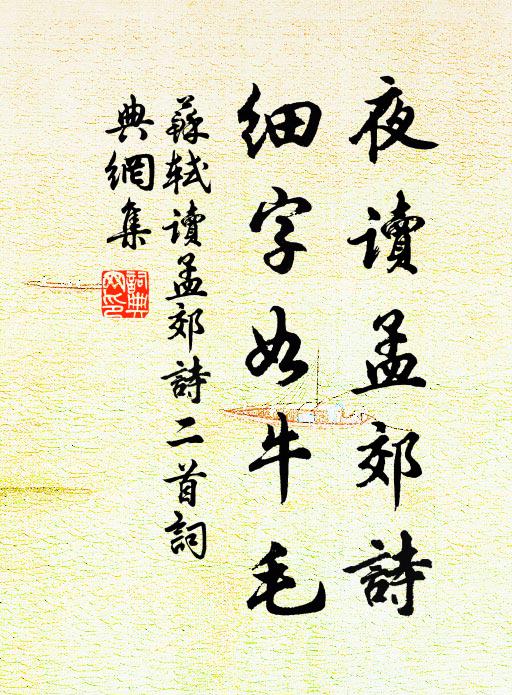 夜讀孟郊詩
細字如牛毛
蘇軾讀孟郊詩二首詞
典網集
詞典网印